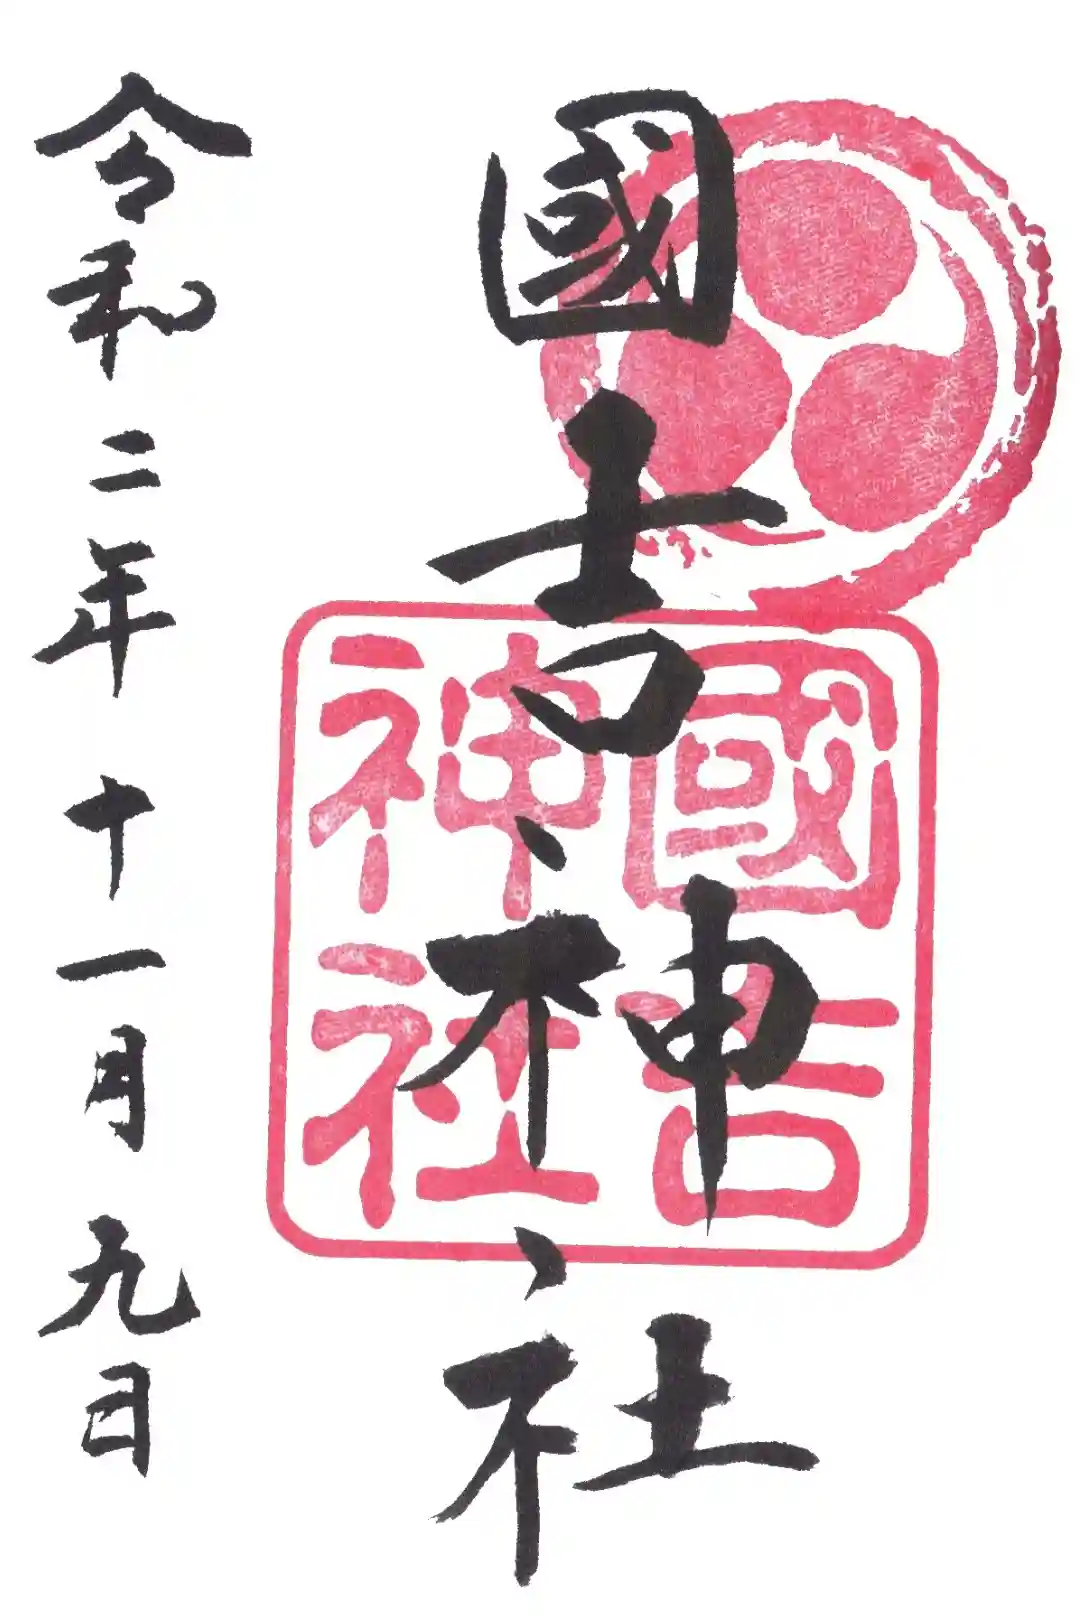 國吉神社
國吉
神社
令和二年十一月九日